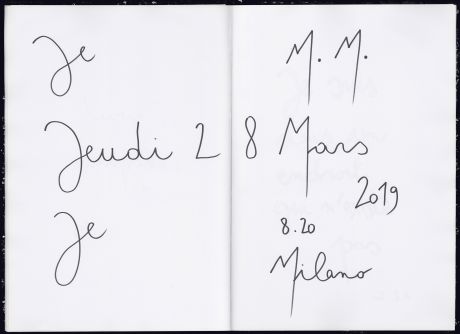 Je M. M.
Jeudi 28 Mars
2019
Je 8.20
Milano